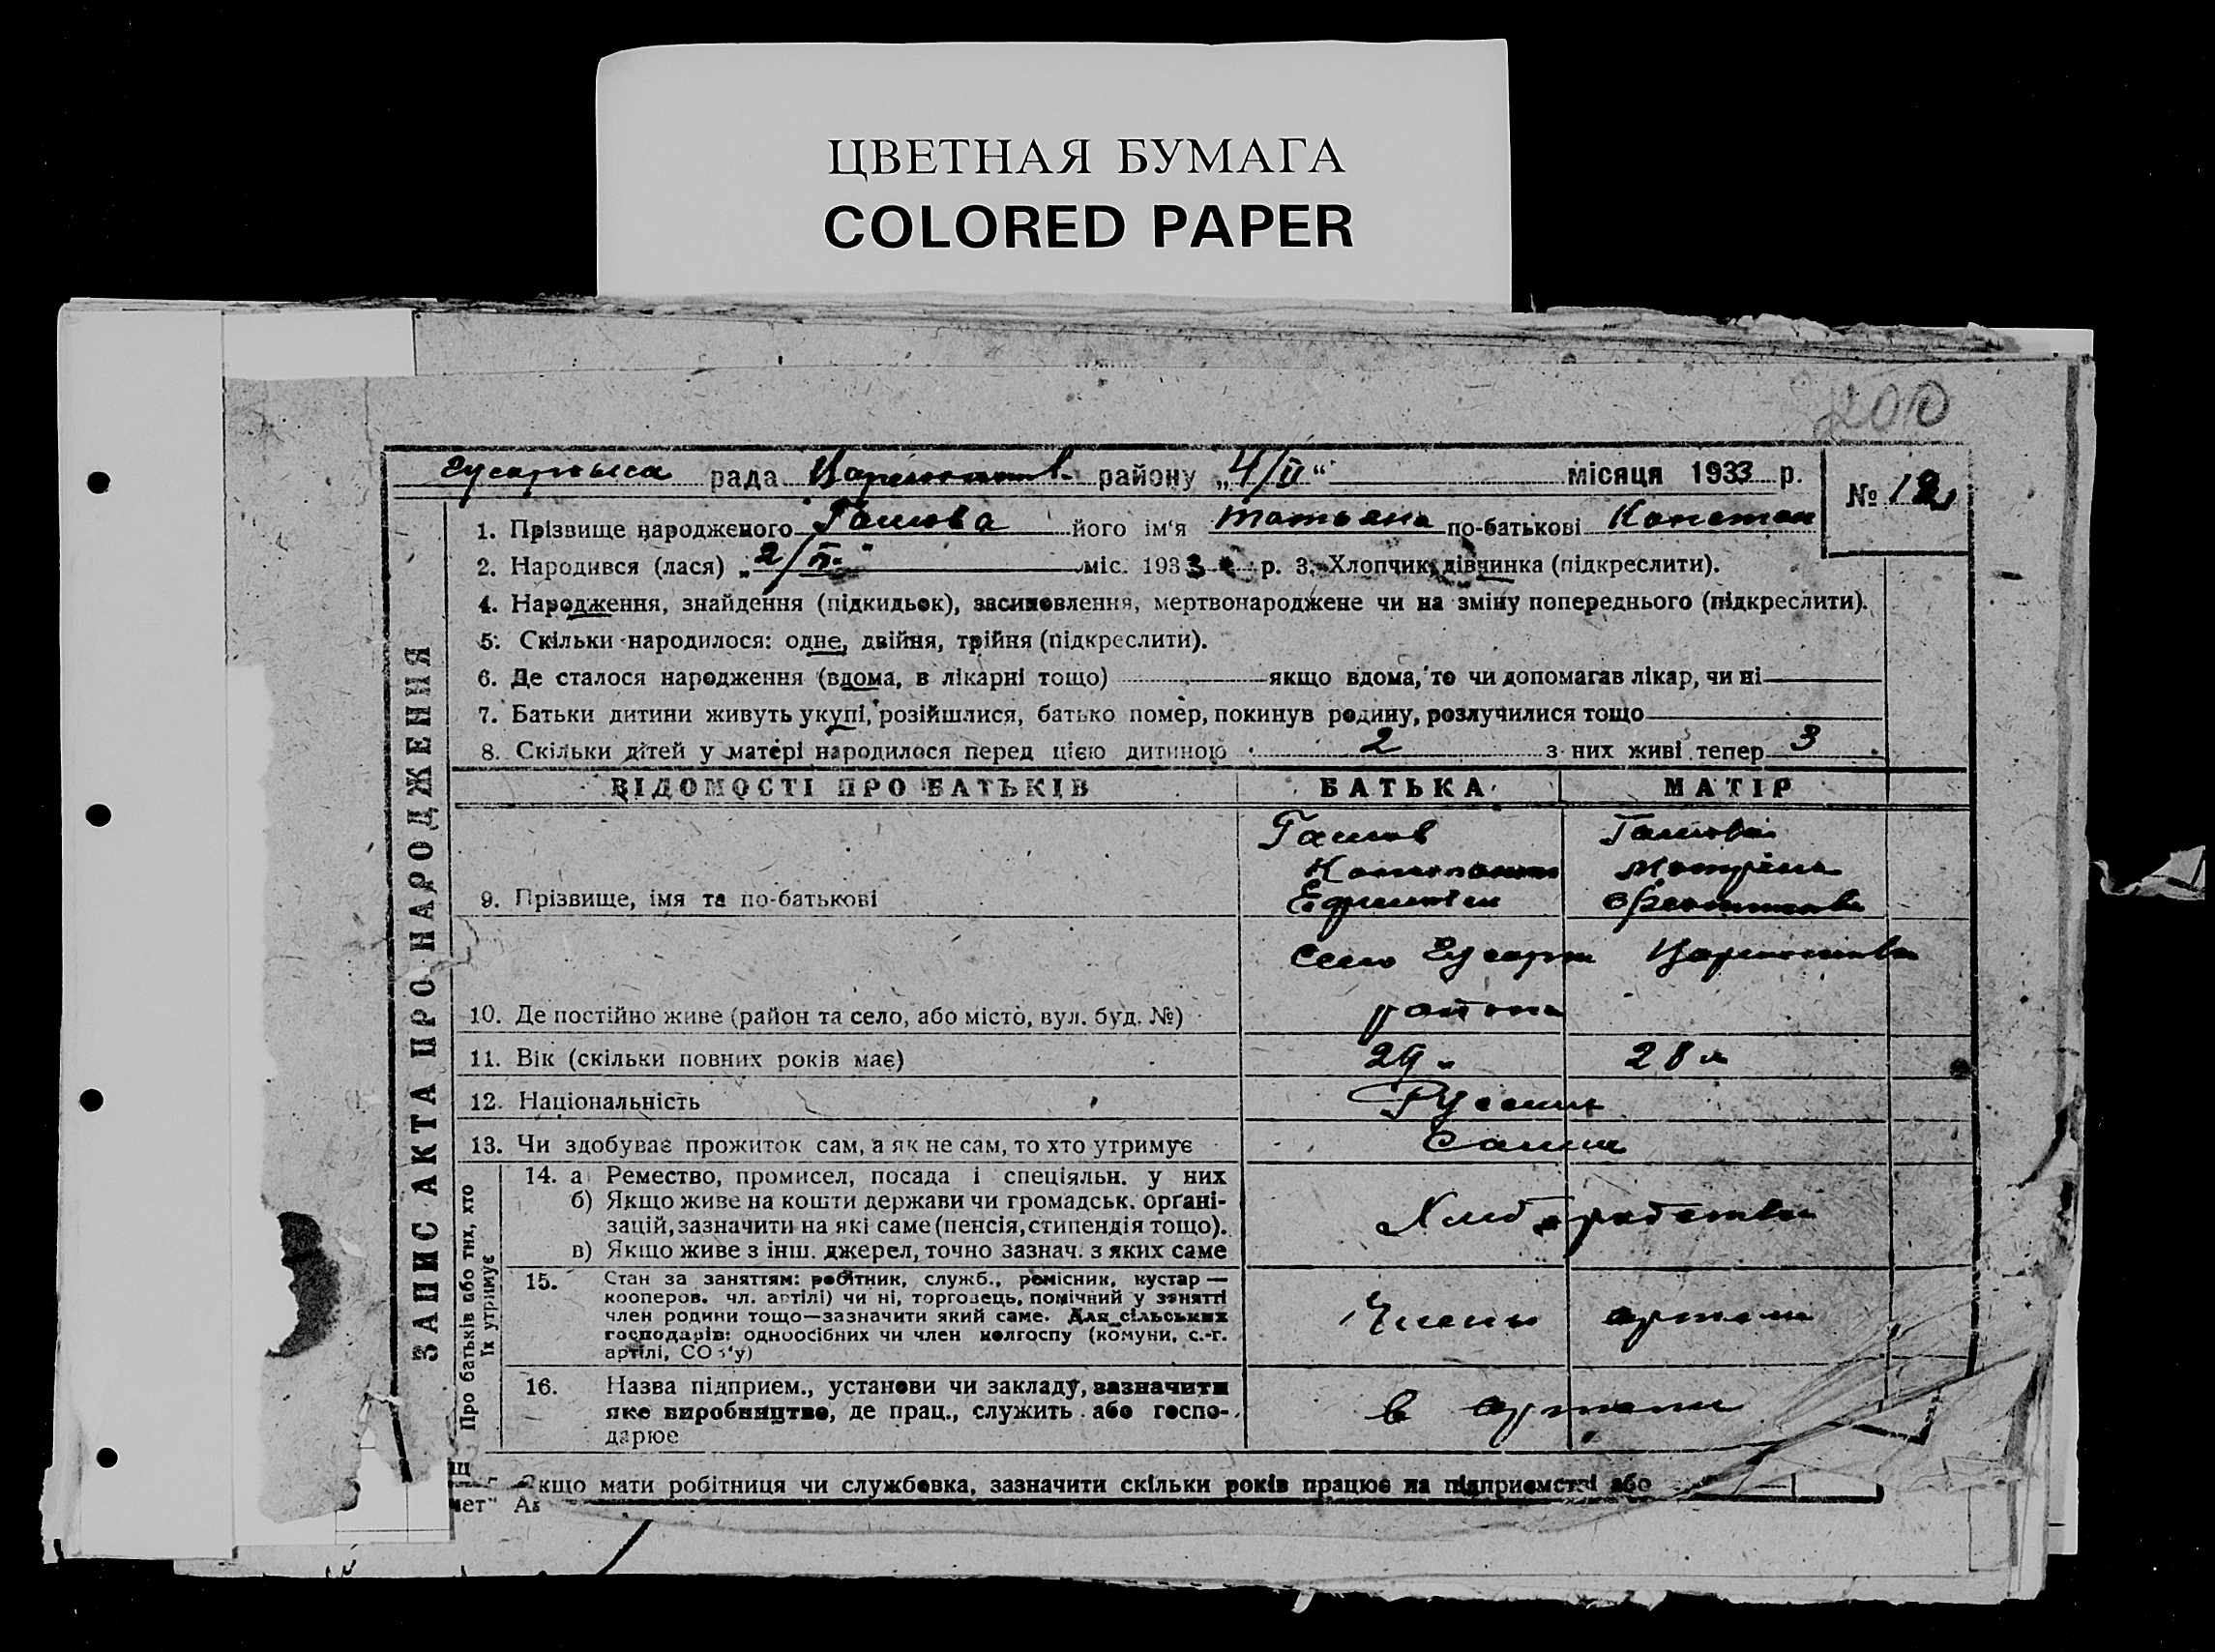 ЦВЕТНАЯ БУМАГА
COLORED PAPER
200
рада района району „4/II“ місяця 1933 р.
№ 12
1. Прізвище народженого його ім'я Татьяна по-батькові Констан
2. Народився (лася) „2/II“ міс. 1933 р. 3. Хлопчик, дівчинка (підкреслити).
4. Народження, знайдення (підкидьок), засиновлення, мертвонароджене чи на зміну попереднього (підкреслити).
5. Скільки народилося: одне, двійня, трійня (підкреслити).
6. Де сталося народження (вдома, в лікарні тощо) якщо вдома, то чи допомагав лікар, чи ні
7. Батьки дитини живуть укупі, розійшлися, батько помер, покинув родину, розлучилися тощо
8. Скільки дітей у матері народилося перед цією дитиною 2 з них живі тепер 3
ЗАПИС АКТА ПРО НАРОДЖЕННЯ
ВІДОМОСТІ ПРО БАТЬКІВ БАТЬКА МАТІР
9. Прізвище, імя та по-батькові
Село
района
10. Де постійно живе (район та село, або місто, вул. буд. №)
11. Вік (скільки повних років має) 29 28
12. Національність Русские
13. Чи здобуває прожиток сам, а як не сам, то хто утримує Сами
Про батьків або тих, хто
їх утримує
14. а Ремество, промисел, посада і спеціяльн. у них
б) Якщо живе на кошти держави чи громадськ. орґані-
зацій, зазначити на які саме (пенсія, стипендія тощо).
в) Якщо живе з інш. джерел, точно зазнач. з яких саме
15. Стан за заняттям: робітник, служб., ремісник, кустар —
кооперов. чл. артілі) чи ні, торговець, помічний у занятті
член родини тощо—зазначити який саме. Для сільських
господарів: одноосібних чи член колгоспу (комуни, с.-г.
артілі, СОЗ'у)
Члены артели
16. Назва підприєм., установи чи закладу, зазначити
яке виробництво, де прац., служить або госпо-
дарює
в артели
Якщо мати робітниця чи службовка, зазначити скільки років працює на підприємстві або